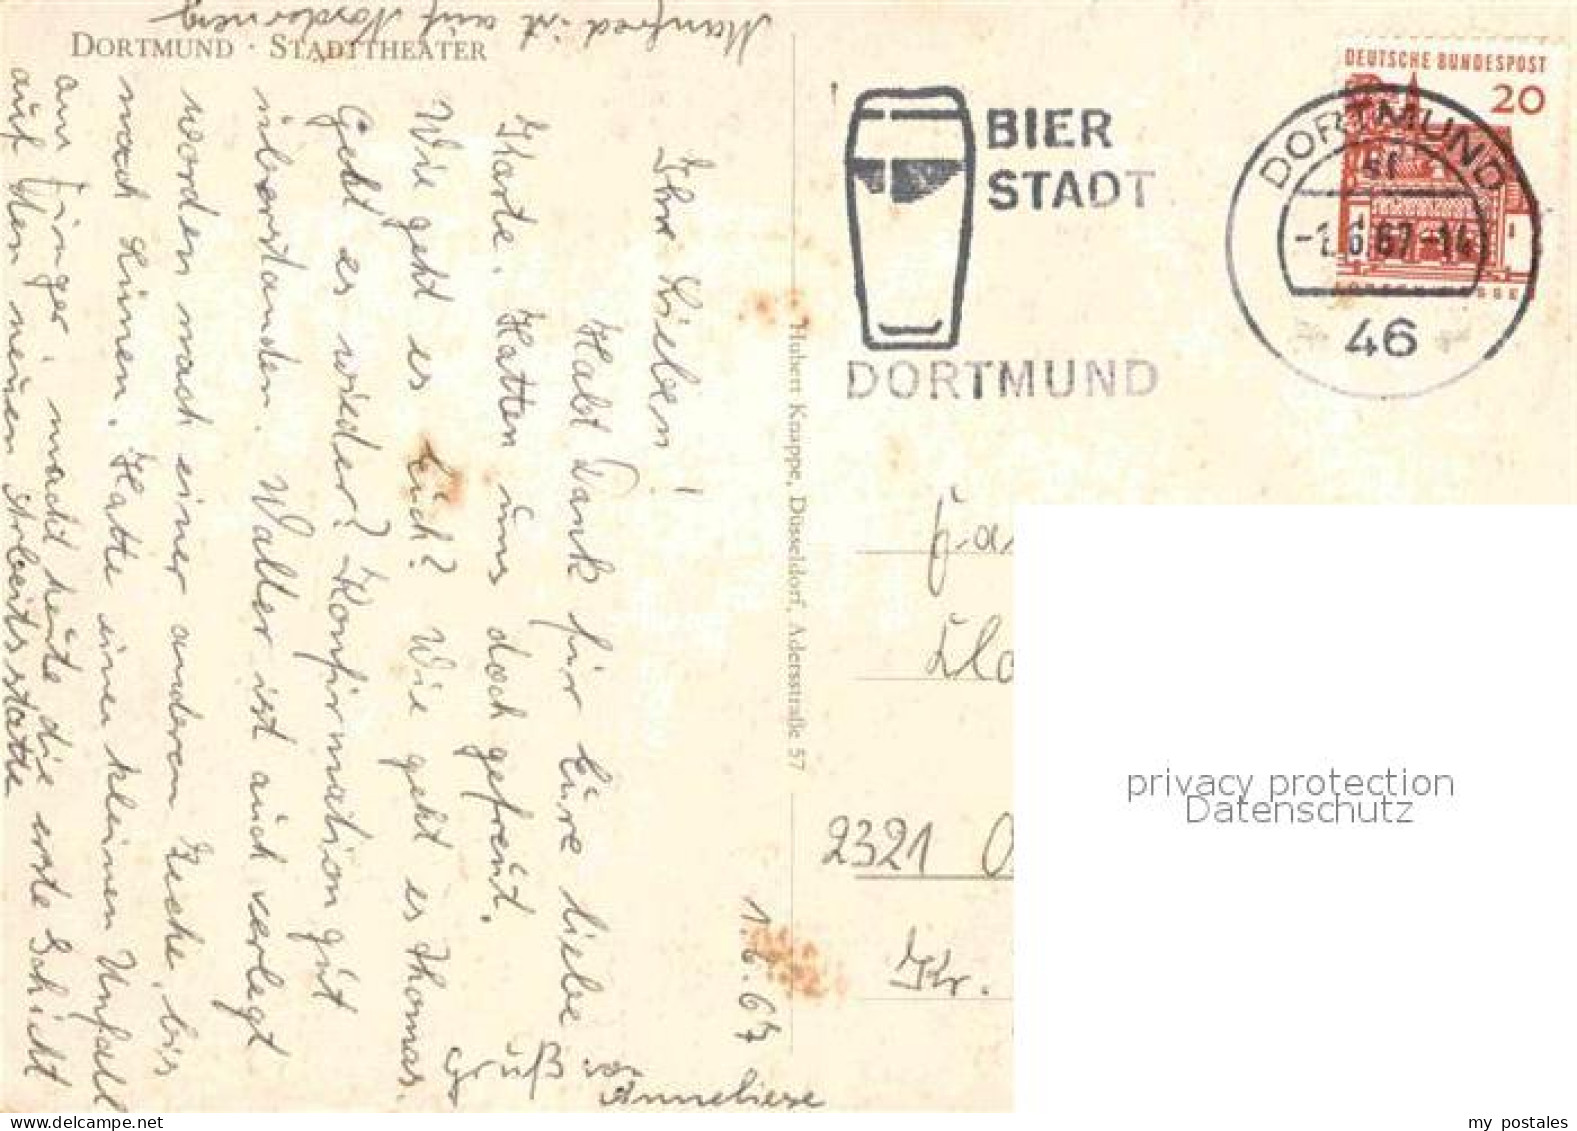 DORTMUND · STADTTHEATER
Manfred ist auf Norderney
1.6.67
Ihr Lieben!
Habt Dank für Eure liebe
Karte. Hatten uns doch gefreut.
Wie geht es Euch? Wie geht es Thomas.
Geht es wieder? Konfirmation gut
überstanden. Walter ist auch verlegt
worden nach einer anderen Zeche, bis
nach Lünen. Hatte einen kleinen Unfall
am Finger, macht heute die erste Schicht
auf der neuen Arbeitsstätte
Gruß von
Anneliese
Hubert Knappe, Düsseldorf, Adersstraße 57
BIER
STADT
DORTMUND
DEUTSCHE BUNDESPOST
20
DORTMUND
-1.6.67-14
46
2321
Kr.
privacy protection
Datenschutz
my postales